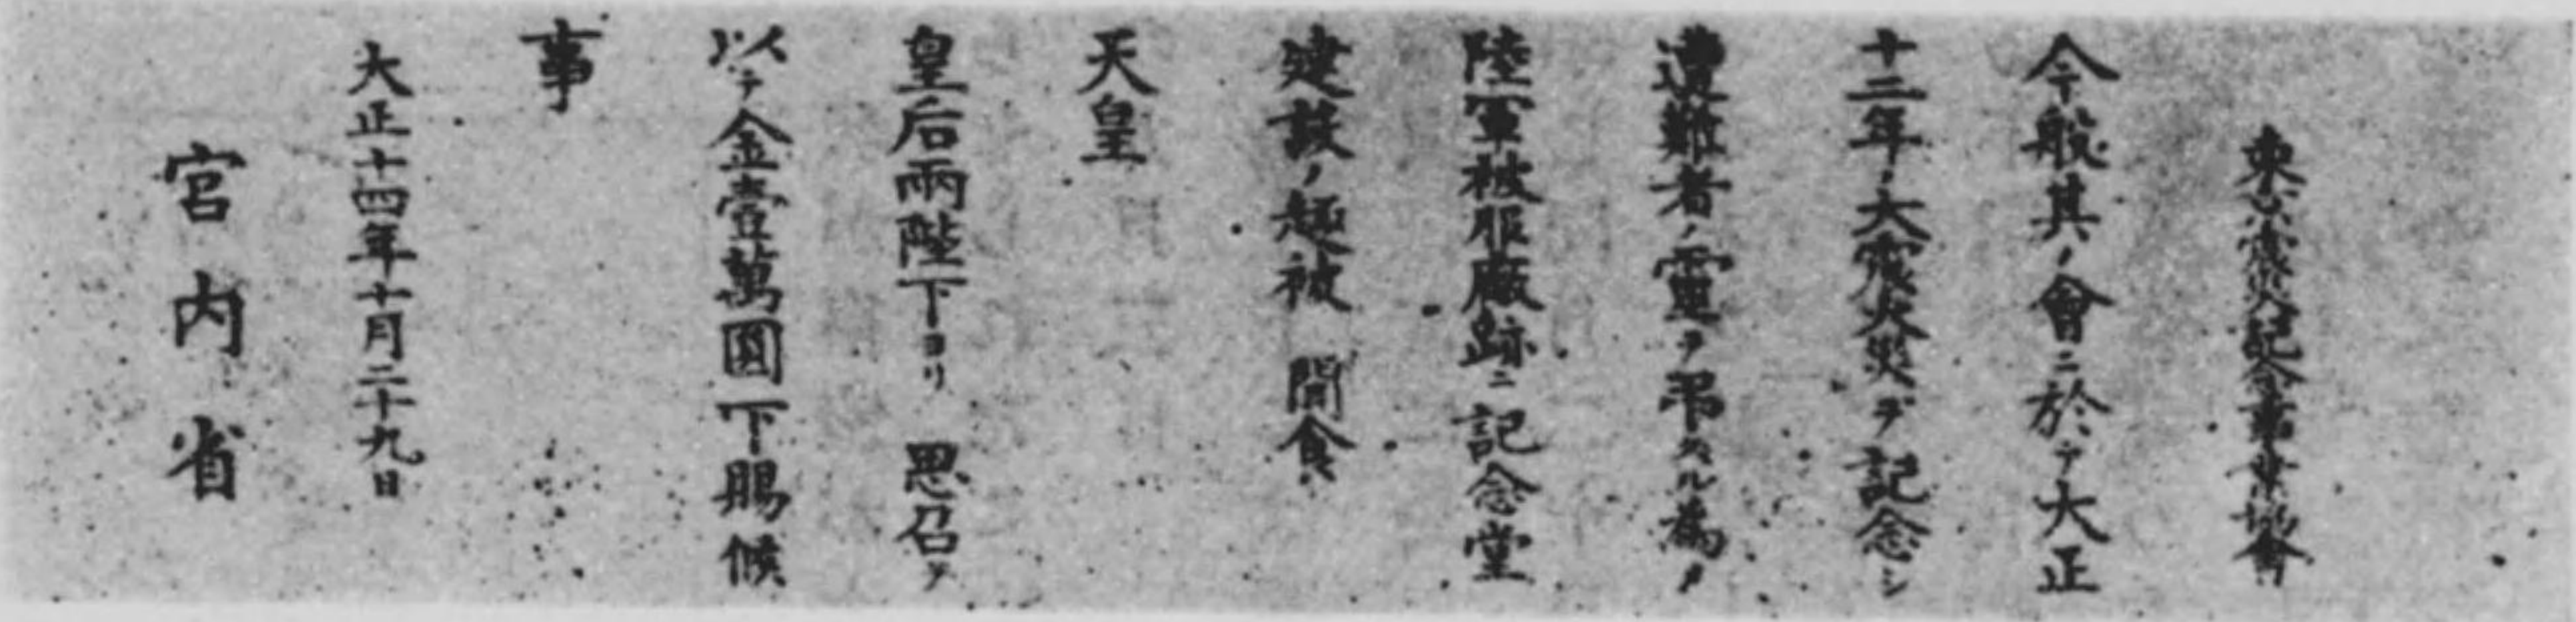 東京震災記念事業協會
今般其ノ會ニ於テ大正
十二年ノ大震火災ヲ記念シ
遭難者ノ靈ヲ弔スル爲メ
陸軍被服廠跡ニ記念堂
建設ノ趣被 聞食
天皇
皇后兩陛下ヨリ 思召ヲ
以テ金壹萬圓下賜候
事
大正十四年十月二十九日
宮内省